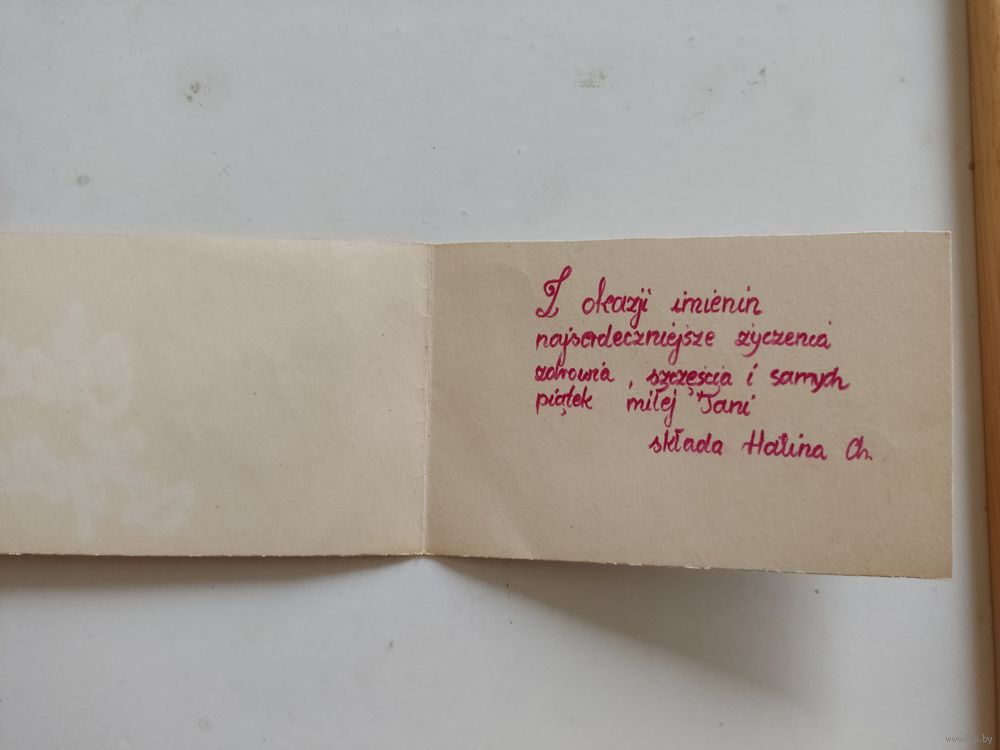 Z okazji imienin
najserdeczniejsze życzenia
zdrowia, szczęścia i samych
piątek miłej Tani
składa Halina Ch.